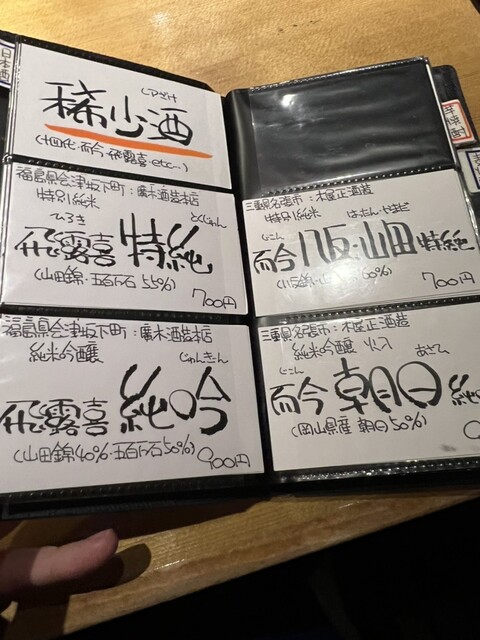 日本酒
レアざけ
稀少酒
(十四代・而今・飛露喜 etc…)
福島県会津坂下町:廣木酒造本店
特別純米
ひろき とくじゅん
飛露喜 特純
(山田錦・五百万石 55%)
700円
福島県会津坂下町:廣木酒造本店
純米吟醸
じゅんぎん
飛露喜 純吟
(山田錦40%・五百万石50%)
900円
三重県名張市:木屋正酒造
特別純米
じこん はったん・やまだ
而今 八反・山田 特純
60%)
700円
三重県名張市:木屋正酒造
純米吟醸 火入
じこん あさひ
而今 朝日 純
(岡山県産 朝日50%)